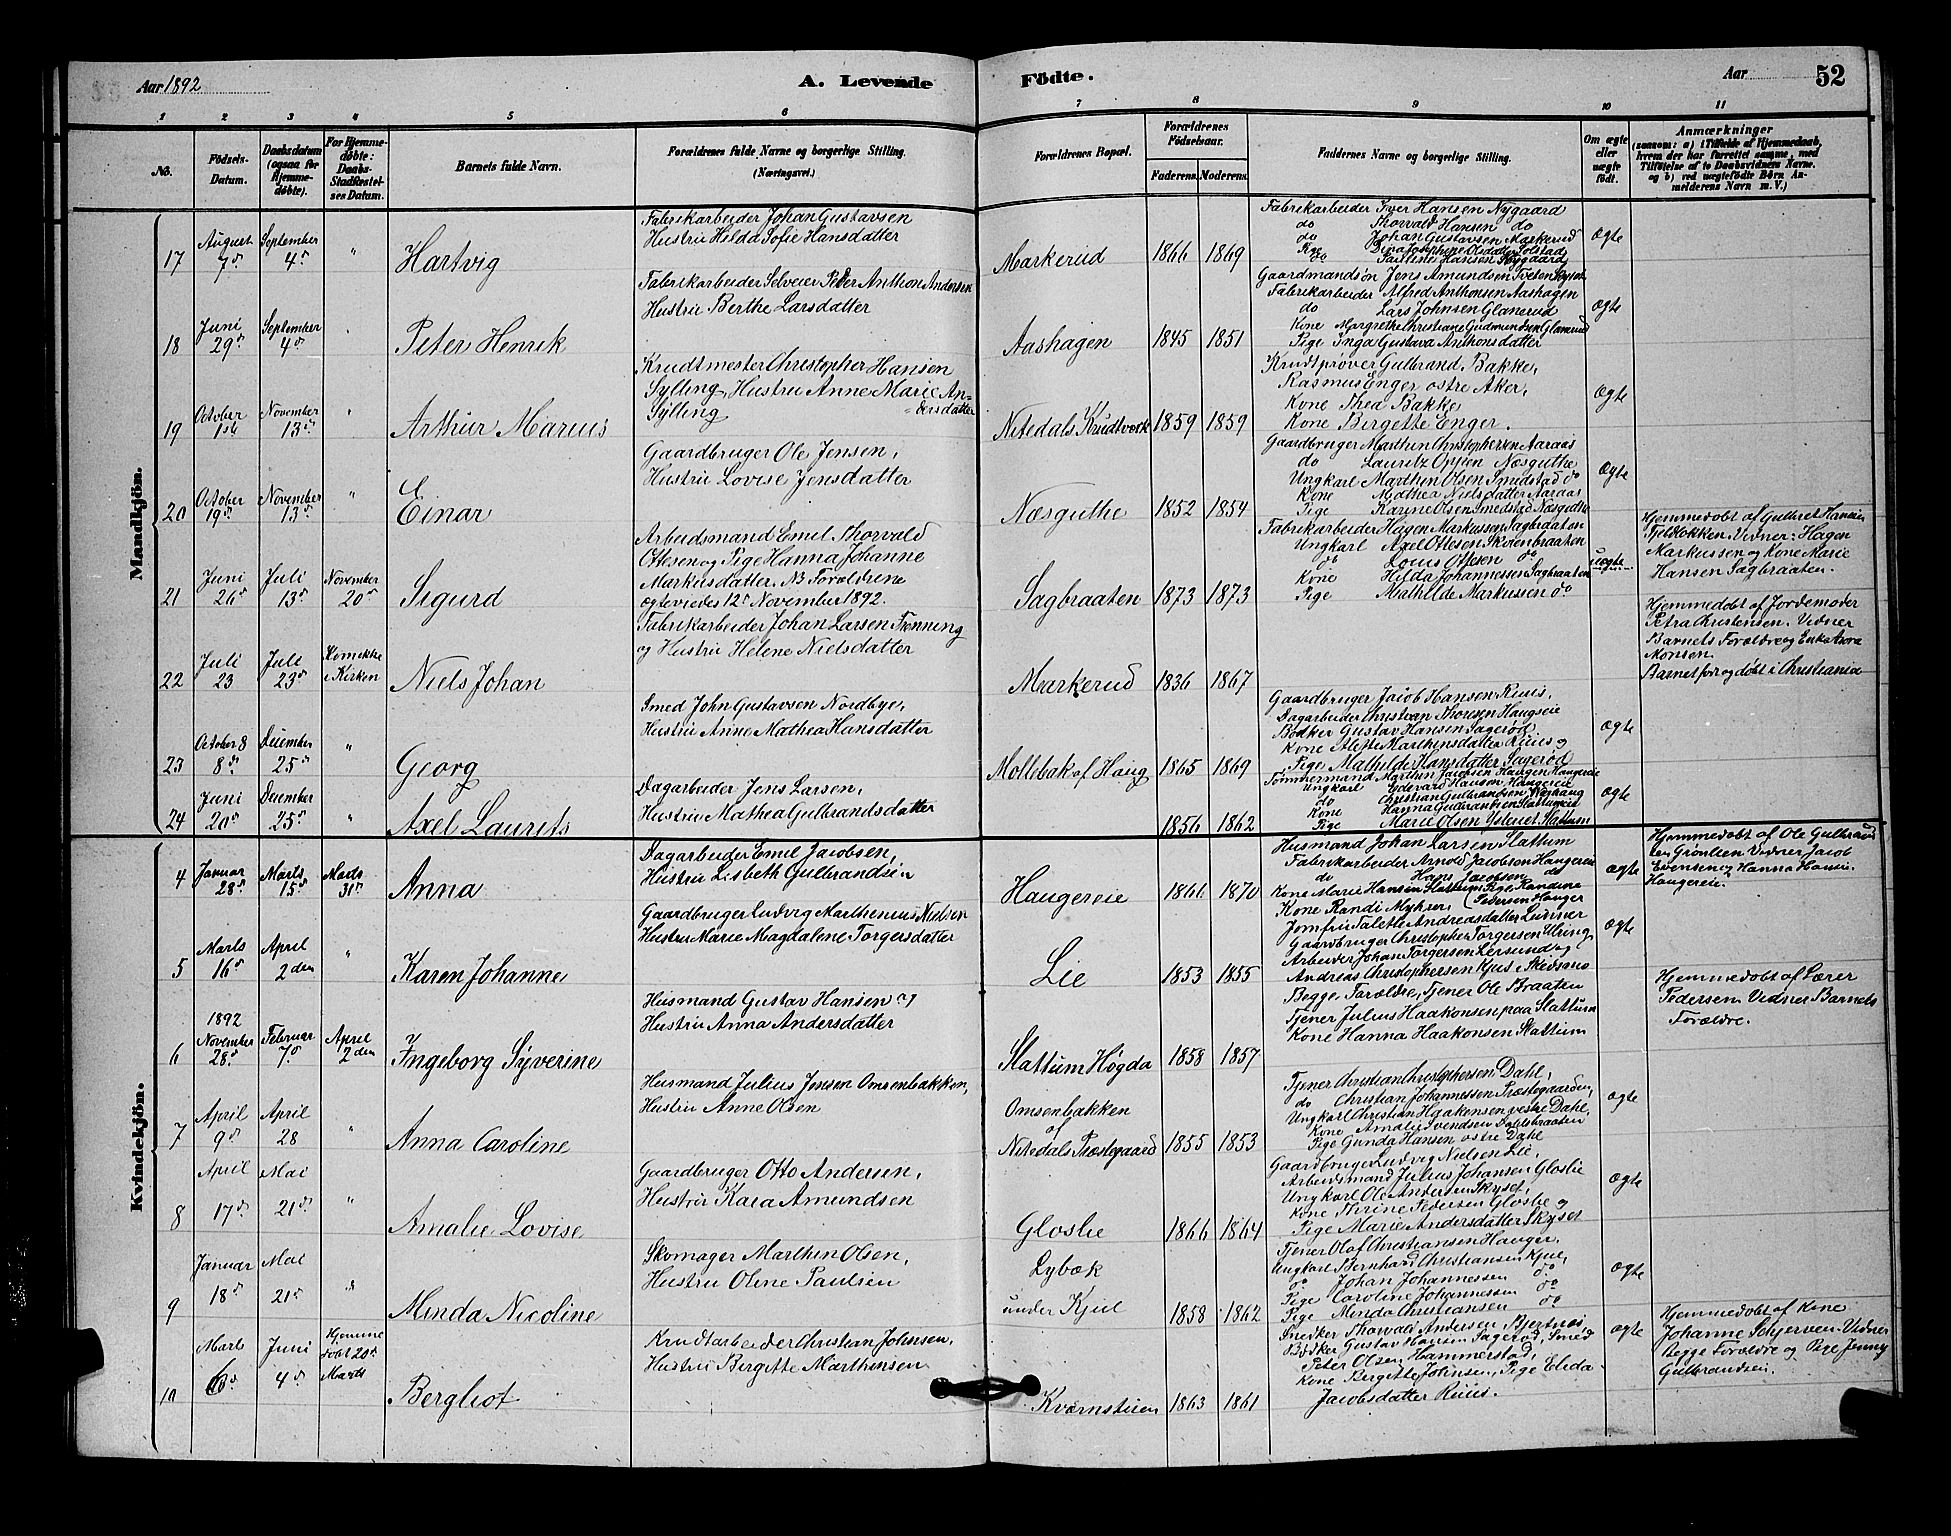 Aar 1892
A. Levende Födte.
Aar
52
1 2 3 4 5 6 7 8 9 10 11
No.
Födsels-
Datum.
Daabsdatum
(ogsaa for
Hjemme-
döbte).
For Hjemme-
döbte:
Daabs-
Stadfæstel-
ses Datum.
Barnets fulde Navn.
Forældrenes fulde Navne og borgerlige Stilling.
(Næringsvei.)
Forældrenes Bopæl.
Forældrenes
Födselsaar.
Faderens. Moderens.
Faddernes Navne og borgerlige Stilling.
Om ægte
eller
uægte
födt.
Anmærkninger
(saasom: a) i Tilfælde af Hjemmedaab,
hvem der har forrettet samme, med
Tilföielse af to Daabsvidners Navne.
og b) ved uægtefödte Börn An-
melderens Navn m. V.)
Mandkjön.
17
August
7de
September
4de
"
Hartvig
Fabrikarbeider Johan Gustavsen
Hustru Hilda Sofie Hansdatter
Markerud
1866 1869
Fabrikarbeider Iver Hansen Nygaard
do Thorvald Hansen do
do Johan Gustavsen Markerud
Pige Dina Josephine Olsdatter
do Pauline Hansen Nygaard
Ægte
18
Juni
29de
September
4de
"
Peter Henrik
Fabrikarbeider Selveier Peder Anthon Andersen
Hustru Berthe Larsdatter
Aashagen
1845 1851
Gaardmandsön Jens Amundsen Tveten
Fabrikarbeider Alfred Anthonsen Aashagen
do Lars Johnsen Glanerud
Kone Margrethe Christiane Gudmundsen Glanerud
Pige Inga Gustava Anthonsdatter
Ægte
19
October
1ste
November
13de
"
Arthur Marius
Krudtmester Christopher Hansen
Sylling, Hustru Anne Marie An-
Sylling dersdatter
Nitedals Krudtværk
1859 1859
Krudtprøver Gulbrand Bakke,
Rasmus Enger østre Aker,
Kone Thea Bakke,
Kone Bergette Enger.
Ægte
20
October
19de
November
13de
"
Einar
Gaardbruger Ole Jensen,
Hustru Lovise Jensdatter
Næsguthe
1852 1854
Gaardbruger Marthin Christophersen Aaraas
do Lauritz Oppen Næsguthe
Ungkarl Marthin Olsen Smedstad do
Kone Mathea Nielsdatter Aaraas
Pige Karine Olsen Smedstad Næsguthe
Ægte
21
Juni
26de
Juli
13de
November
20de
Sigurd
Arbeidsmand Emil Thorvald
Ottesen og Pige Hanna Johanne
Markusdatter. NB Forældrene
ægteviedes 12te November 1892.
Sagbraaten
1873 1873
Fabrikarbeider Hagen Markussen Sagbraaten
Ungkarl Axel Ottesen Skotenbraaten
do Louis Ottesen do
Kone Hilda Johannessen Sagbraaten
Pige Mathilde Markussen do
uægte
Hjemmedøbt af Gulbret Hansen
Fjeldlokken. Vidner: Hagen
Markussen og Kone Marie
Hansen Sagbraaten.
22
Juli
23
Juli
23de
i Kirken
Niels Johan
Fabrikarbeider Johan Larsen Frenning
og Hustru Helene Nielsdatter
Markerud
1836 1867
Hjemmedøbt af Jordemoder
Petra Christensen. Vidner
Barnets Forældre og Enke
Monsen.
Barnet foregdøbt i Christiania
23
October 8
8de
December
25de
"
Georg
Smed John Gustavsen Nordbye,
Hustru Anne Mathea Hansdatter
Mollebak af Haug
1865 1869
Gaardbruger Jacob Hansen Ruus,
Dagarbeider Christian Thoresen Haugseie
Bødker Gustav Hansen Sagerød,
Kone Alette Marthinsdatter Ruus og
Pige Mathilde Hansdatter Sagerød
Ægte
24
Juni
20de
December
25de
"
Axel Laurits
Dagarbeider Jens Larsen,
Hustru Mathea Gulbrandsdatter
1856 1862
Tømmermand Marthin Jacobsen Haugen Haugereie
Ungkarl Edevard Hansen, Haugereie
do Christian Gulbrandsen
Kone Hanna Gulbrandsen Slattumeie
Pige Marie Olsen Slattum
Ægte
Kvindekjön.
4
Januar
28de
Marts
15de
Marts
31te
Anna
Dagarbeider Emil Jacobsen,
Hustru Lisbeth Gulbrandsen
Haugereie
1866 1870
Husmand Johan Larsen Slattum
Fabrikarbeider Arnold Jacobsen Haugereie
do Hans Jacobsen do
Kone Marie Hansen Slattum, Pige Randine
Pedersen Hauger
Ægte
Hjemmedøbt af Ole Gulbrand
sen Grønlien Vidner Jacob
Evensen og Hanna Hansen
Haugereie.
5
Marts
16de
April
2den
"
Karen Johanne
Gaardbruger Ludvig Marthenius Nielsen
Hustru Marie Magdalene Torgersdatter
Lie
1853 1855
Kone Randi Myhrer,
Jomfru Talette Andreasdatter
Gaardbruger Christopher Torgersen Ulring,
Arbeider Johan Torgersen Lersund og
Andreas Christophersen Kjus i Skedsmo
Ægte
6
1892
November
28de
Februar
7de
April
2den
Ingeborg Syverine
Husmand Gustav Hansen og
Hustru Anna Andersdatter
Slattum Høgda
1858 1857
Begge Forældre, Tjener Ole Braaten
Tjener Julius Haakonsen paa Slattum
Kone Hanna Haakonsen Slattum
Hjemmedøbt af Lærer
Pedersen Vidner Barnets
Forældre.
7
April
9de
April
28
"
Anna Caroline
Husmand Julius Jensen Omsenbakken,
Hustru Anne Olsen
Omsenbakken
af
Nitedals Præstegaard
1855 1853
Tjener Christian Christophersen Dahl,
do Christian Johannessen Præstegaarden,
Ungkarl Christian Haakensen vestre Dahl,
Kone Amalie Svendsen Dahlsbraaten
Pige Gunda Hansen østre Dahl
Ægte
8
April
17de
Mai
21de
"
Amalie Lovise
Gaardbruger Otto Andersen,
Hustru Kaia Amundsen
Gloslie
1866 1864
Gaardbruger Ludvig Nielsen Lie,
Arbeidsmand Julius Johansen Gloslie
Ungkarl Ole Andersen Skyset,
Kone Thrine Pedersen Gloslie og
Pige Marie Andersdatter Skyset
Ægte
9
Januar
18de
Mai
21de
"
Minda Nicoline
Skomager Marthin Olsen,
Hustru Oline Paulsen
Lybæk
under Kjul
1858 1862
Tjener Olaf Christiansen Hauger,
Ungkarl Bernhard Christiansen Kjul,
do Johan Johannessen do
Pige Caroline Johannessen do
Pige Minda Christiansen do
Ægte
10
Marts
6de
Juni
4de
Hjemme
døbt 20de
Marts
Bergliot
Krudtarbeider Christian Johnsen,
Hustru Bergitte Marthinsen
Kværnstuen
1863 1861
Snedker Thorvald Andersen Bjertnæs,
Bødker Gustav Hansen Sagerød, Smed
Peter Olsen Hammerstad,
Kone Bergette Johnsen, Pige Elida
Jacobsdatter Ruus.
Ægte
Hjemmedøbt af Kone
Johanne Schjerven. Vidner
begge Forældre og Pige Jenny
Gulbrandsen.